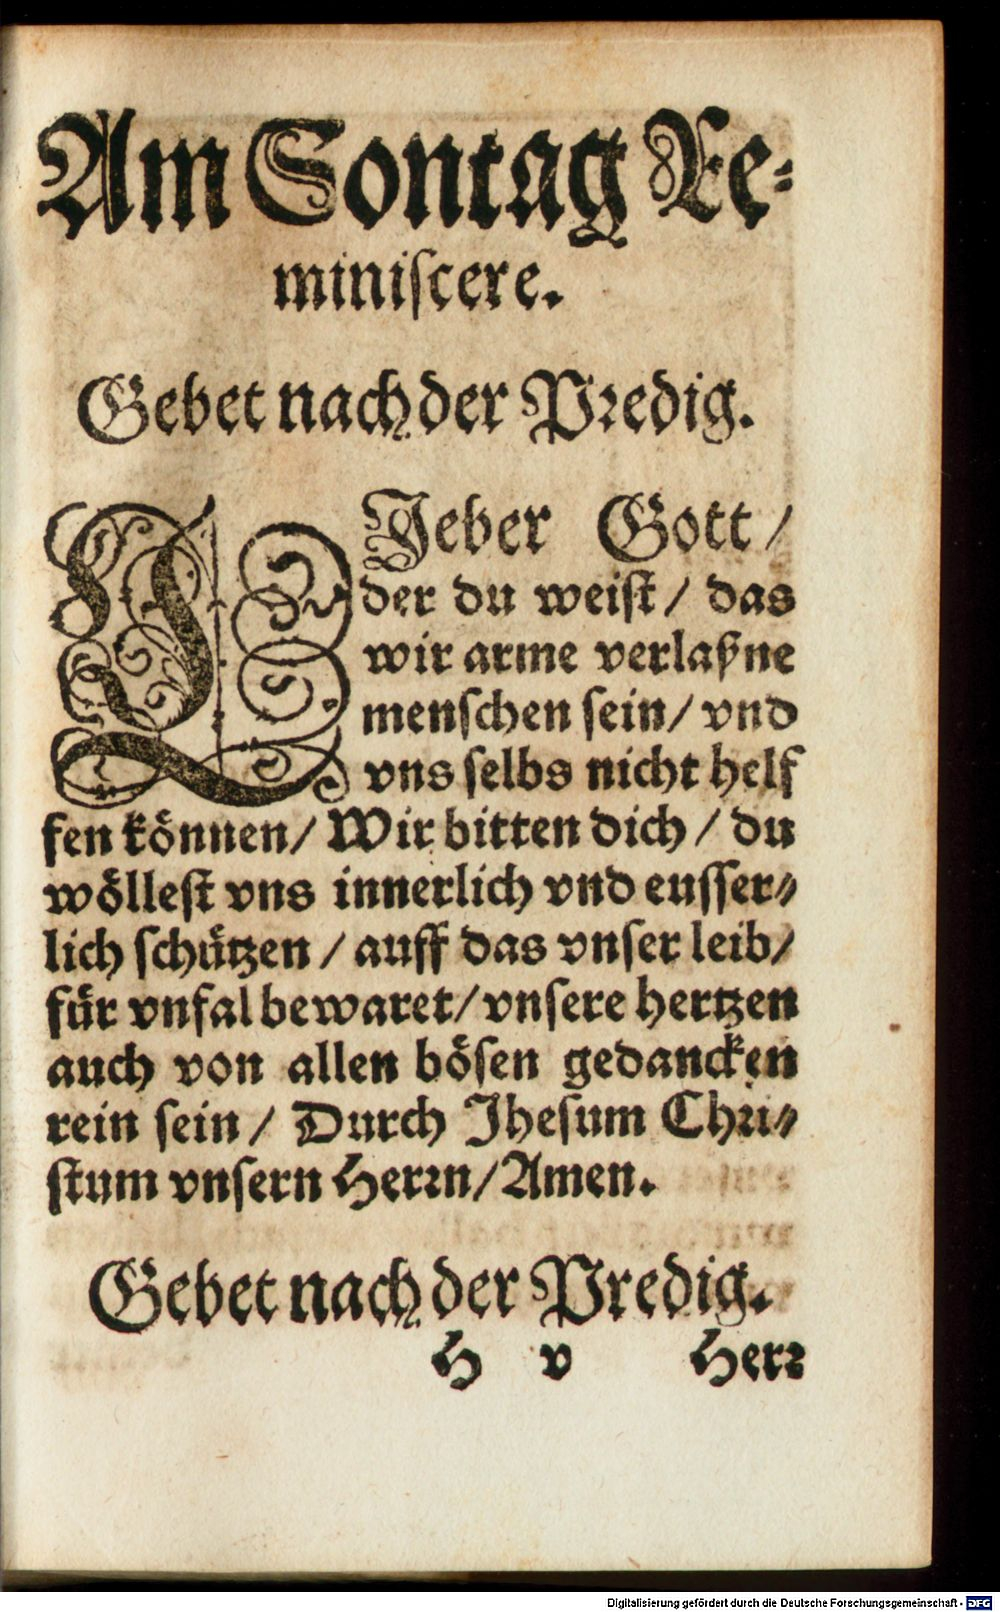 Am Sontag Re-
miniscere.
Gebet nach der Predig.
LIeber Gott /
der du weist / das
wir arme verlaßne
menschen sein / vnd
vns selbs nicht helf
fen können / Wir bitten dich / du
wöllest vns innerlich vnd eusser-
lich schützen / auff das vnser leib /
für vnfal bewaret / vnsere hertzen
auch von allen bösen gedancken
rein sein / Durch Jhesum Chri-
stum vnsern Herrn / Amen.
Gebet nach der Predig.
H v Herr
Digitalisierung gefördert durch die Deutsche Forschungsgemeinschaft - DFG